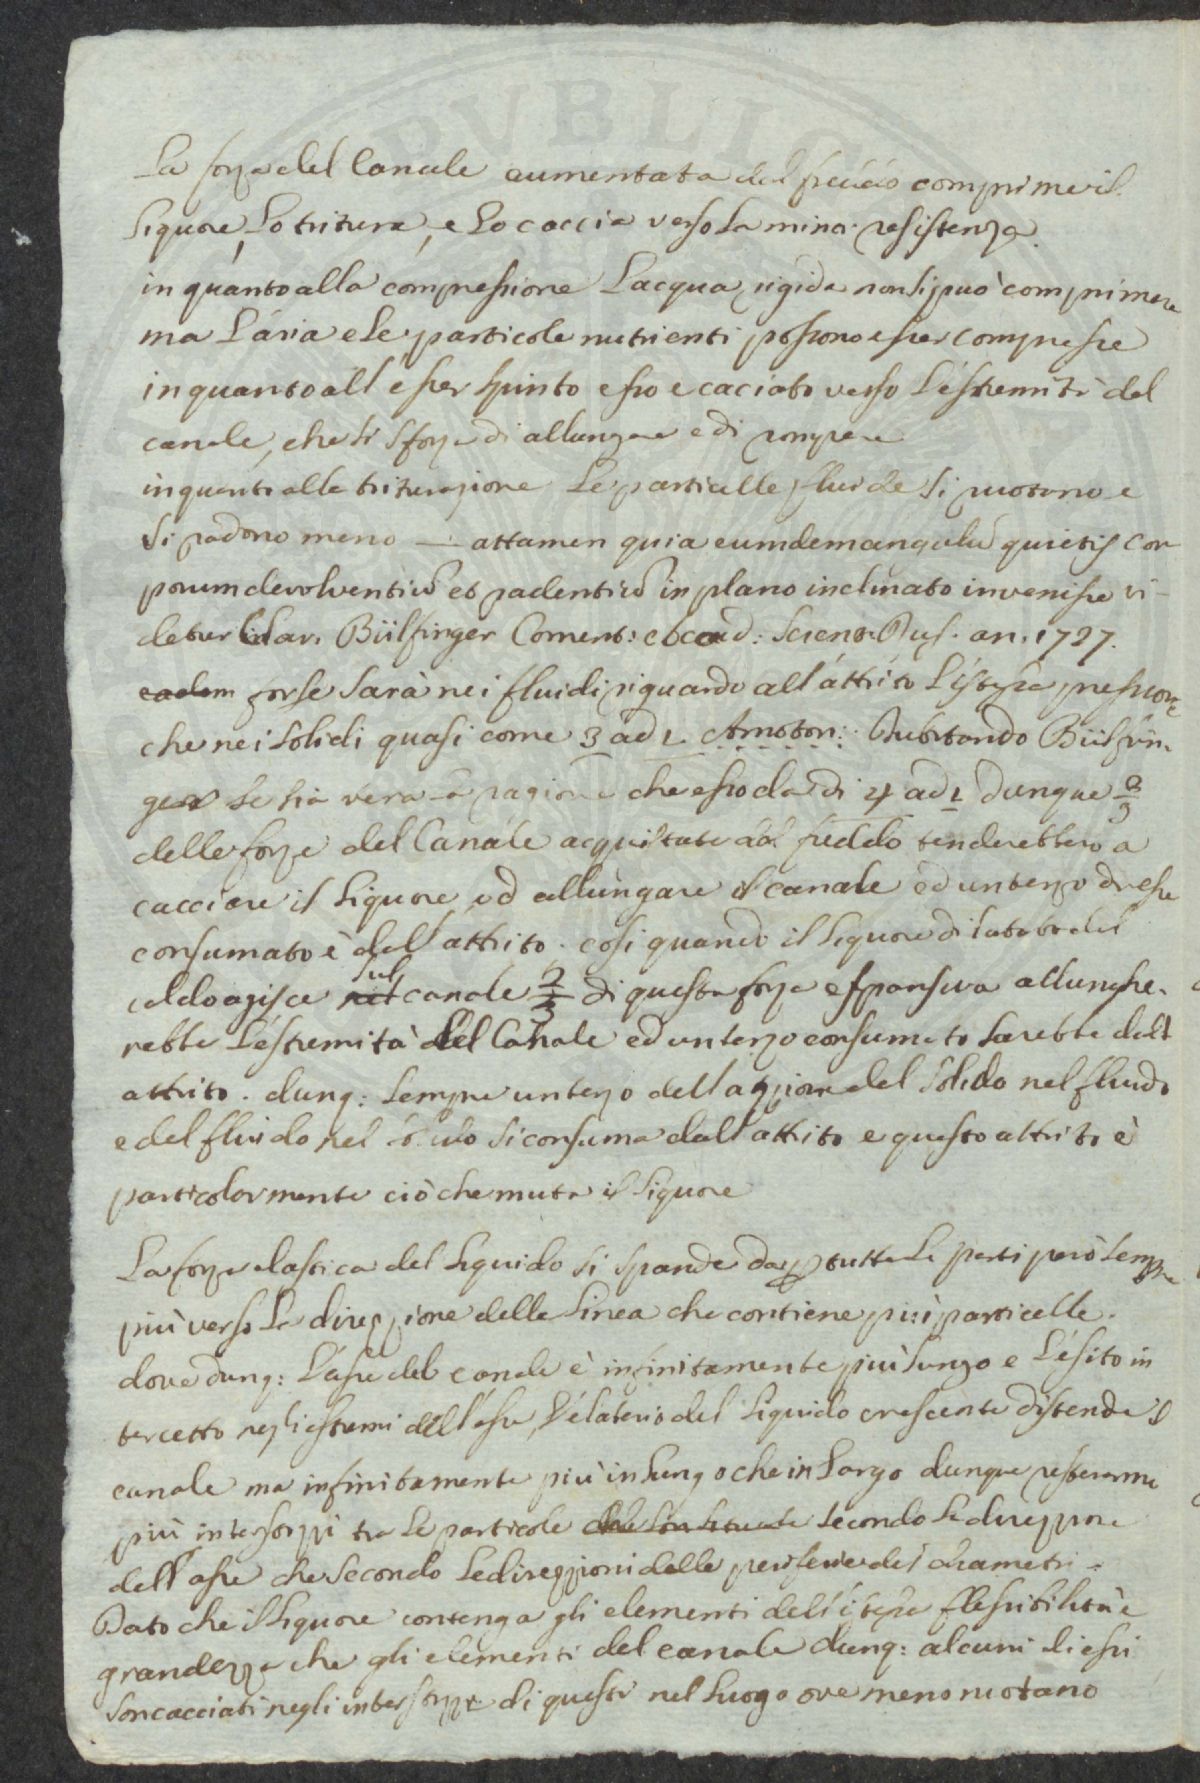 La forza del Canale aumentata dal freddo comprime il
liquore, lo tritura, e lo caccia verso la minor resistenza.
in quanto alla compressione l'acqua rigida non si può comprimere
ma l'aria e le particole nutrienti possono esser compresse
in quanto all'esser spinto esso e caciato verso l'estremità del
canale, che si sforza di allungare e di rompere
in quanto alla triturazione le particelle fluide si ruotano e
si radono meno — attamen quia eumdem angulũ quietis cor
porum devolventiũ et radentiũ in plano inclinato invenisse vi-
detur Clar. Bülfinger Coment: Acad: Scient. Rus. an. 1727.
eadem forse sarà nei fluidi riguardo all'attrito l'istessa pressione
che nei solidi quasi come 3 ad 1. Amoton: dubitando Bülfin-
ger se sia vera la ragione che esso dà di 4 ad 1 dunque 2/3
delle forze del Canale acquistate dal freddo tenderebbero a
cacciare il liquore ed allungare il canale ed un terzo di esse
consumato è dall'attrito. così quando il liquore dilatato dal
caldo agisce nel sul canale 2/3 di questa forza espansiva allunghe-
rebbe l'estremità del Canale ed un terzo consumato sarebbe dall
attrito. dunq: sempre un terzo dell'azzione del solido nel fluido
e del fluido nel solido si consuma dall'attrito e questo attrito è
particolarmente ciò che muta il liquore
La forza elastica del liquido si spande da p tutte le parti però sempre
più verso la direzzione della linea che contiene più particelle.
dove dunq: l'asse del canale è infinitamente più lungo e l'esito in
tercetto negli estremi dell'asse, l'elaterio del liquido crescente distende il
canale ma infinitamente più in lungo che in largo dunque resteranno
più intersorzzi tra le particole che son situate secondo la direzzione
dell'asse che secondo le direzzioni delle periferie dei diametri.
Dato che il liquore contenga gli elementi dell'istessa flessibilità e
grandezza che gli elementi del canale dunq: alcuni di essi
son cacciati negli interstizzi di questi nel luogo ove meno ruotano